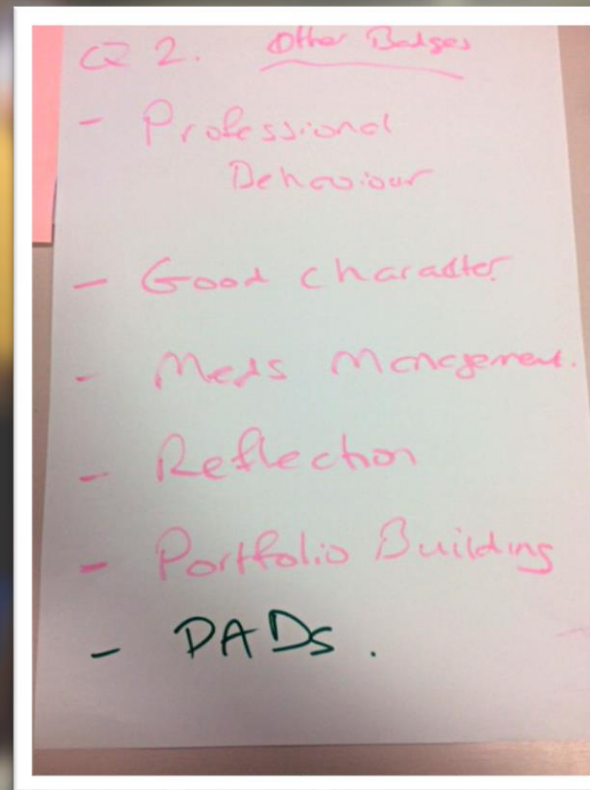 Q 2. Other Badges
- Professional
Behaviour
- Good character
- Meds Management.
- Reflection
- Portfolio Building
- PADs.